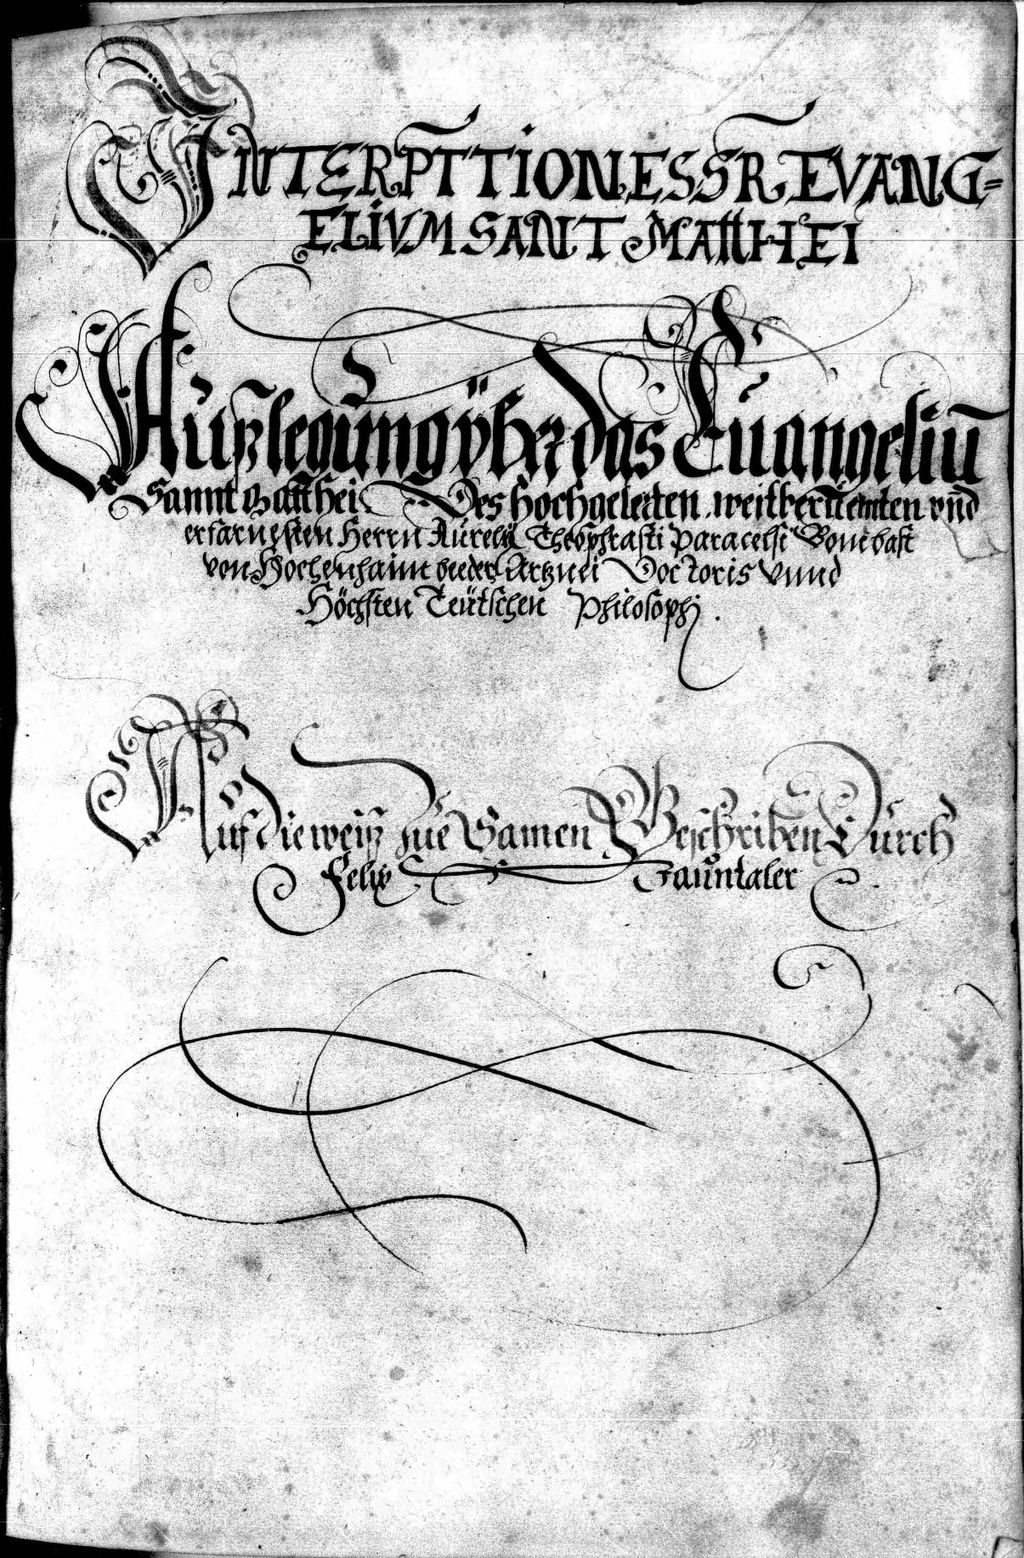 INTERPTTIONES SR EVANG=
ELIVM SANT MATTHEI
Außlegung vber das Euangeliū
Sannt Matthei Des Hochgelerten, weitberiemten vnd
erfarnesten Herrn Aurely Theophrasti Paracelsi Bombast
von Hochenhaim beeder Artznei Doctoris Vnnd
Höchsten Teütschen Philosophj.
Auf die weiß Zue Samen Beschriben Durch
Felix Taũntaler